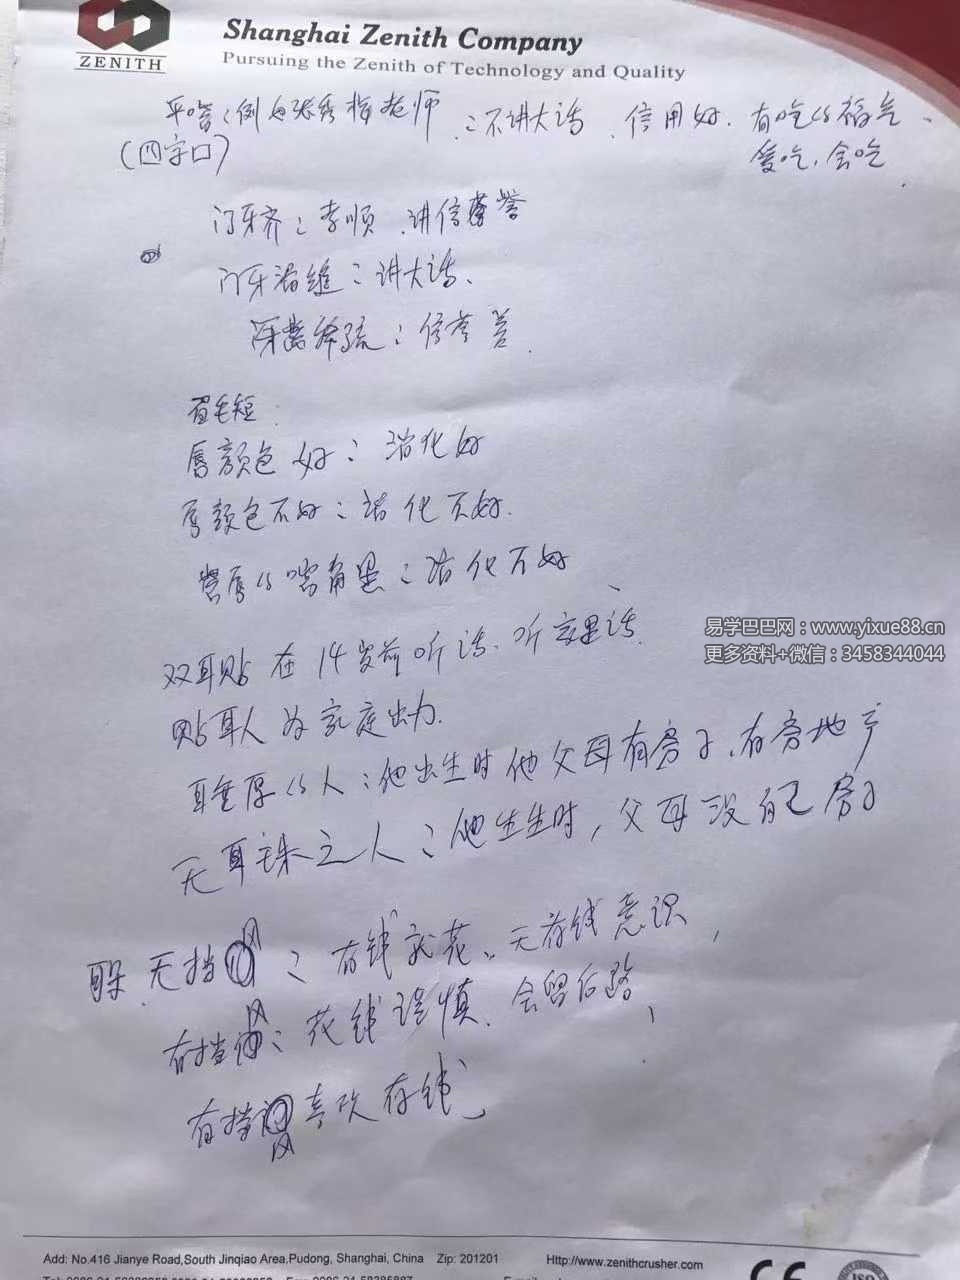 ZENITH
Shanghai Zenith Company
Pursuing the Zenith of Technology and Quality
平嘴：例如张秀梅老师：不讲大话、信用好、有吃的福气、
(四字口)
爱吃、会吃
门牙齐：孝顺、讲信誉
门牙漏缝：讲大话、
牙齿稀疏：信誉差
眉毛短
唇颜色好：消化好
唇颜色不好：消化不好.
唇的嘴角黑：消化不好
双耳贴 在14岁前听话、听家里话
贴耳人为家庭出力.
耳垂厚的人：他出生时他父母有房子、有房地产
无耳珠之人：他出生时，父母没自己房子
易学巴巴网：www.yixue88.cn
更多资料+微信：3458344044
耳朵 无挡风：有钱就花、无存钱意识，
有挡风：花钱谨慎、会留后路，
有挡风喜欢存钱
Add: No.416 Jianye Road,South Jinqiao Area,Pudong, Shanghai, China Zip: 201201 Http://www.zenithcrusher.com
CE
ISO